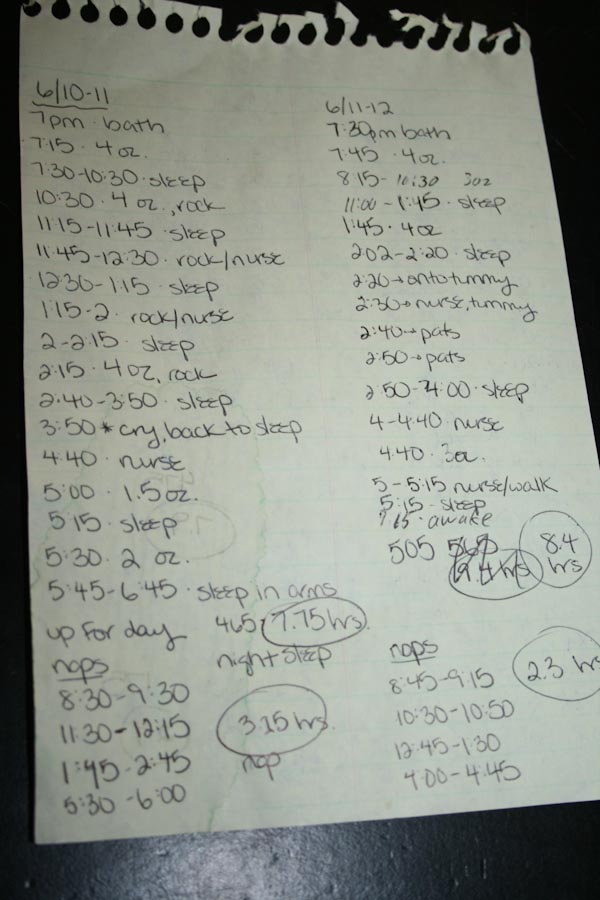 6/10-11
7pm · bath
7:15 · 4 oz.
7:30-10:30 · sleep
10:30 · 4 oz., rock
11:15-11:45 · sleep
11:45-12:30 · rock/nurse
12:30-1:15 · sleep
1:15-2 · rock/nurse
2-2:15 · sleep
2:15 · 4 oz, rock
2:40-3:50 · sleep
3:50 * cry, back to sleep
4:40 · nurse
5:00 · 1.5 oz.
5:15 · sleep
5:30 · 2 oz.
5:45-6:45 · sleep in arms
up for day 465: 7.75 hrs.
night sleep
naps
8:30-9:30
11:30-12:15 3.15 hrs.
1:45-2:45 nap
5:30-6:00
6/11-12
7:30pm bath
7:45 · 4 oz.
8:15-10:30 3oz
11:00-1:45 · sleep
1:45 · 4oz
202-2:20 · sleep
2:20→onto tummy
2:30→nurse, tummy
2:40→pats
2:50→pats
2:50-4:00 · sleep
4-4:40 · nurse
4:40 · 3oz.
5-5:15 nurse/walk
5:15 · sleep
7:15 · awake
505 565 8.4 hrs
9.4 hrs
naps
8:45-9:15 2.3 hrs
10:30-10:50
12:45-1:30
4:00-4:45